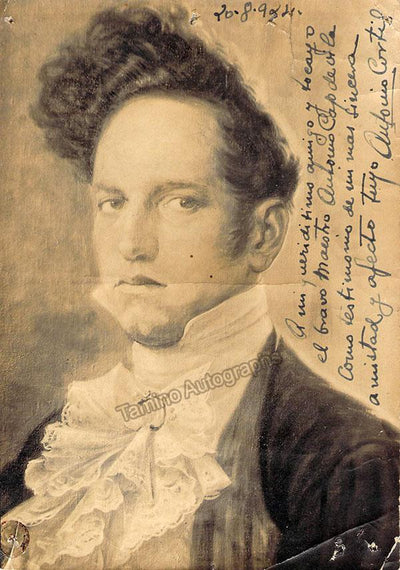 20-8-924.
A mi queriditimo amigo y tocayo
el bravo Maestro Antonio Capdevila
Como testimonio de mi mas sincera
amistad y afecto tuyo Antonio Cortis
Tamino Autographs